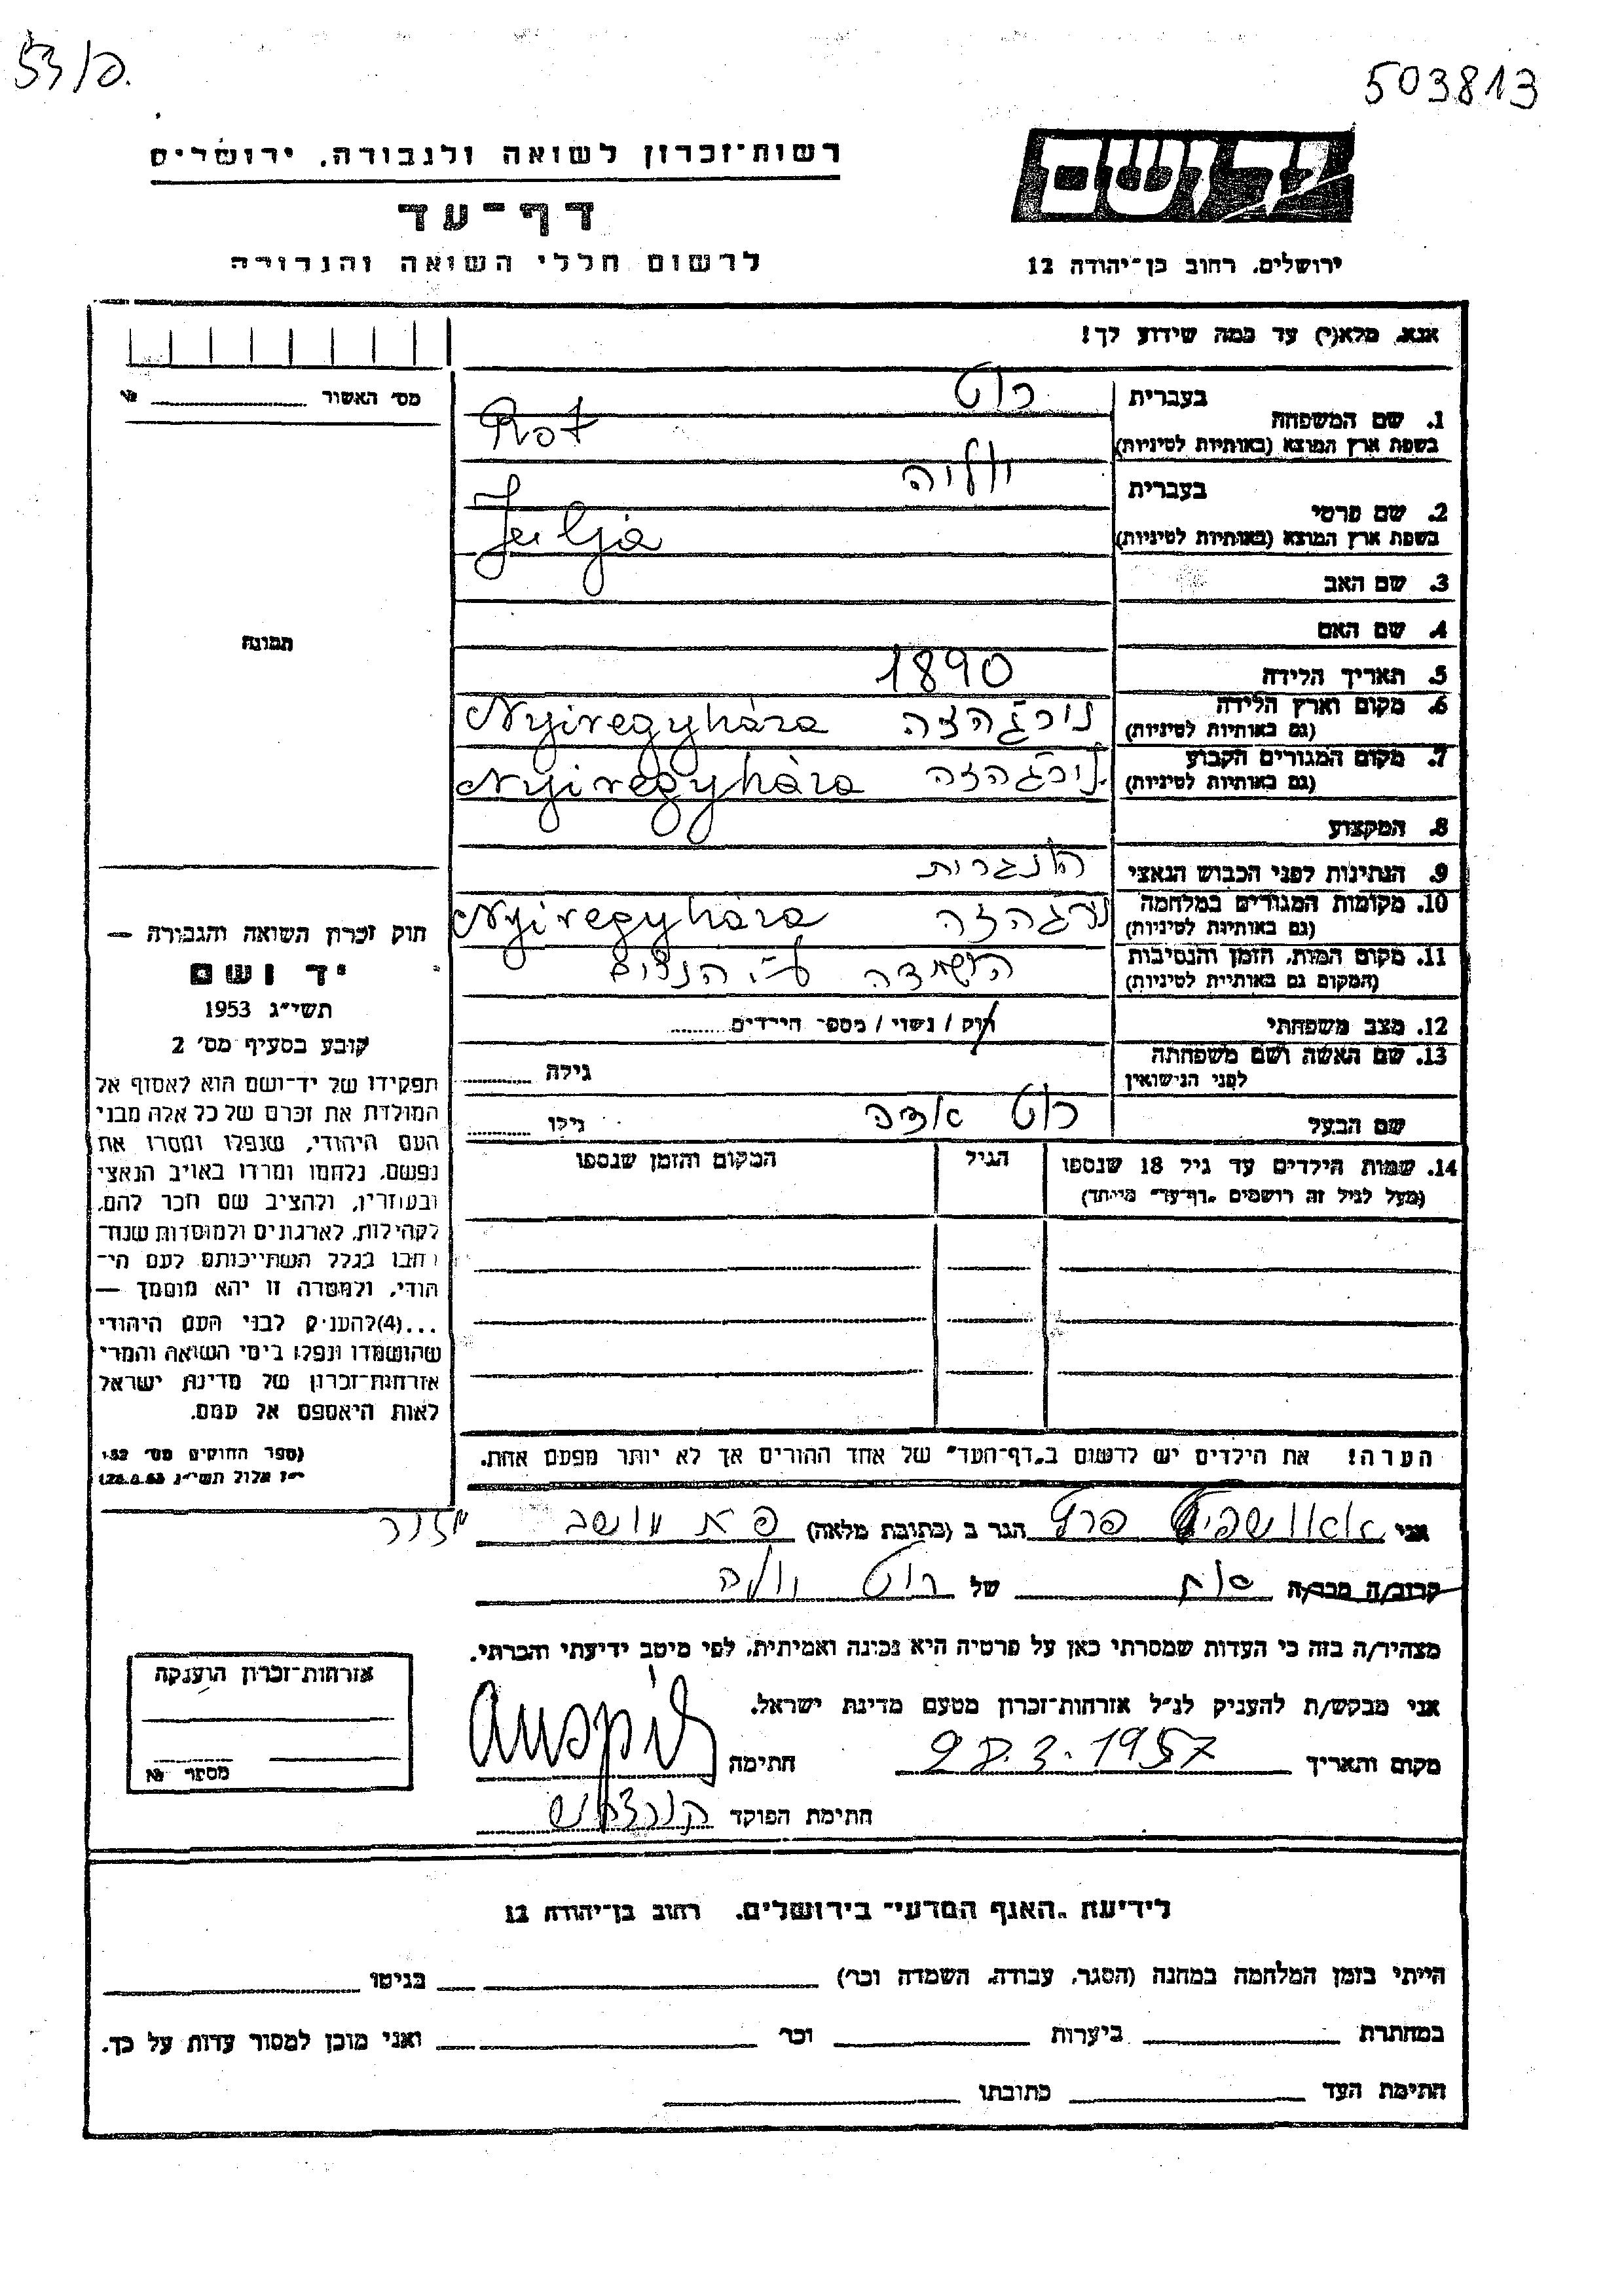 53/פ.
503813
רשות־זכרון לשואה ולגבורה, ירושלים
דף־עד
לרשום חללי השואה והגבורה
יד ושם
ירושלים, רחוב בן־יהודה 12
אנא, מלא(י) עד כמה שידוע לך!
מס׳ האשור №
תמונה
1. שם המשפחה
בעברית רוט
בשפת ארץ המוצא (באותיות לטיניות) Rot
2. שם פרטי
בעברית יוליה
בשפת ארץ המוצא (באותיות לטיניות) Julja
3. שם האב
4. שם האם
5. תאריך הלידה 1890
6. מקום וארץ הלידה
(גם באותיות לטיניות) נירגהזה Nyiregyháza
7. מקום המגורים הקבוע
(גם באותיות לטיניות) נירגהזה Nyiregyháza
8. המקצוע
9. הנתינות לפני הכבוש הנאצי הונגרית
10. מקומות המגורים במלחמה
(גם באותיות לטיניות) נירגהזה Nyiregyháza
11. מקום המות, הזמן והנסיבות
(המקום גם באותיות לטיניות) הושמדה ע״י הנצים
12. מצב משפחתי רווק / נשוי / מספר הילדים
13. שם האשה ושם משפחתה
לפני הנישואין גילה
שם הבעל רוט גילו
14. שמות הילדים עד גיל 18 שנספו
(מעל לגיל זה רושמים „דף־עד״ מיוחד)
הגיל
המקום והזמן שנספו
הערה! את הילדים יש לרשום ב„דף־העד״ של אחד ההורים אך לא יותר מפעם אחת.
חוק זכרון השואה והגבורה —
יד ושם
תשי״ג 1953
קובע בסעיף מס׳ 2
תפקידו של יד־ושם הוא לאסוף אל
המולדת את זכרם של כל אלה מבני
העם היהודי, שנפלו ומסרו את
נפשם, נלחמו ומרדו באויב הנאצי
ובעוזריו, ולהציב שם וזכר להם,
לקהילות, לארגונים ולמוסדות שנח־
רבו בגלל השתייכותם לעם הי־
הודי, ולמטרה זו יהא מוסמך —
...(4)להעניק לבני העם היהודי
שהושמדו ונפלו בימי השואה והמרי
אזרחות־זכרון של מדינת ישראל
לאות היאספם אל עמם.
(ספר החוקים מס׳ 132
י״ז אלול תשי״ג 28.8.53)
אני הגר ב (כתובת מלאה) מושב מזור
קרוב/ה מכר/ה של רוט יוליה
מצהיר/ה בזה כי העדות שמסרתי כאן על פרטיה היא נכונה ואמיתית, לפי מיטב ידיעתי והכרתי.
אני מבקש/ת להעניק לנ״ל אזרחות־זכרון מטעם מדינת ישראל.
מקום והתאריך 28.3.1957 חתימה Auspitz
חתימת הפוקד
אזרחות־זכרון הוענקה
מספר №
לידיעת „האגף המדעי״ בירושלים, רחוב בן־יהודה 12
הייתי בזמן המלחמה במחנה (הסגר, עבודה, השמדה וכר׳) בגיטו
במחתרת ביערות וכר׳ ואני מוכן למסור עדות על כך.
חתימת העד כתובתו